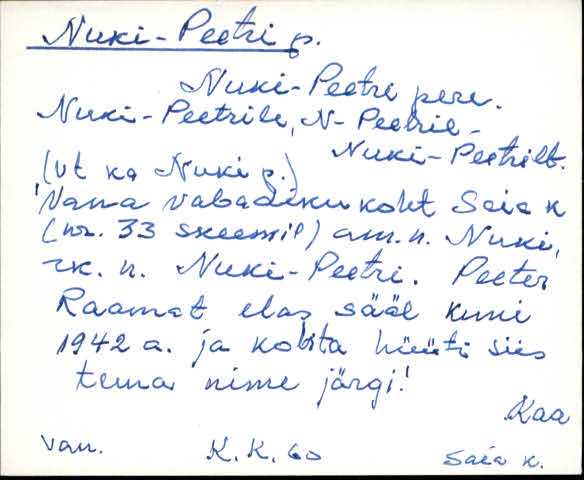 Nuki-Peetri p.
Nuki-Peetri pere.
Nuki-Peetrile, N-Peetril-
Nuki-Peetrilt.
(vt ka Nuki p.)
Vana vabadikukoht Saia k
(nr. 33 skeemil) am. n. Nuki,
rk. n. Nuki-Peetri. Peeter
Raamat elas sääl kuni
1942 a. ja kohta hüüti siis
tema nime järgi!
Kaa
Van. K. K. 60 Saia k.